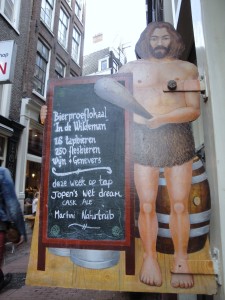 Bierproeflokaal
In de Wildeman
18 tapbieren
250 flesbieren
Wijn + Genevers
deze week op tap
Jopen's wet dream
CASK ALE
Martini